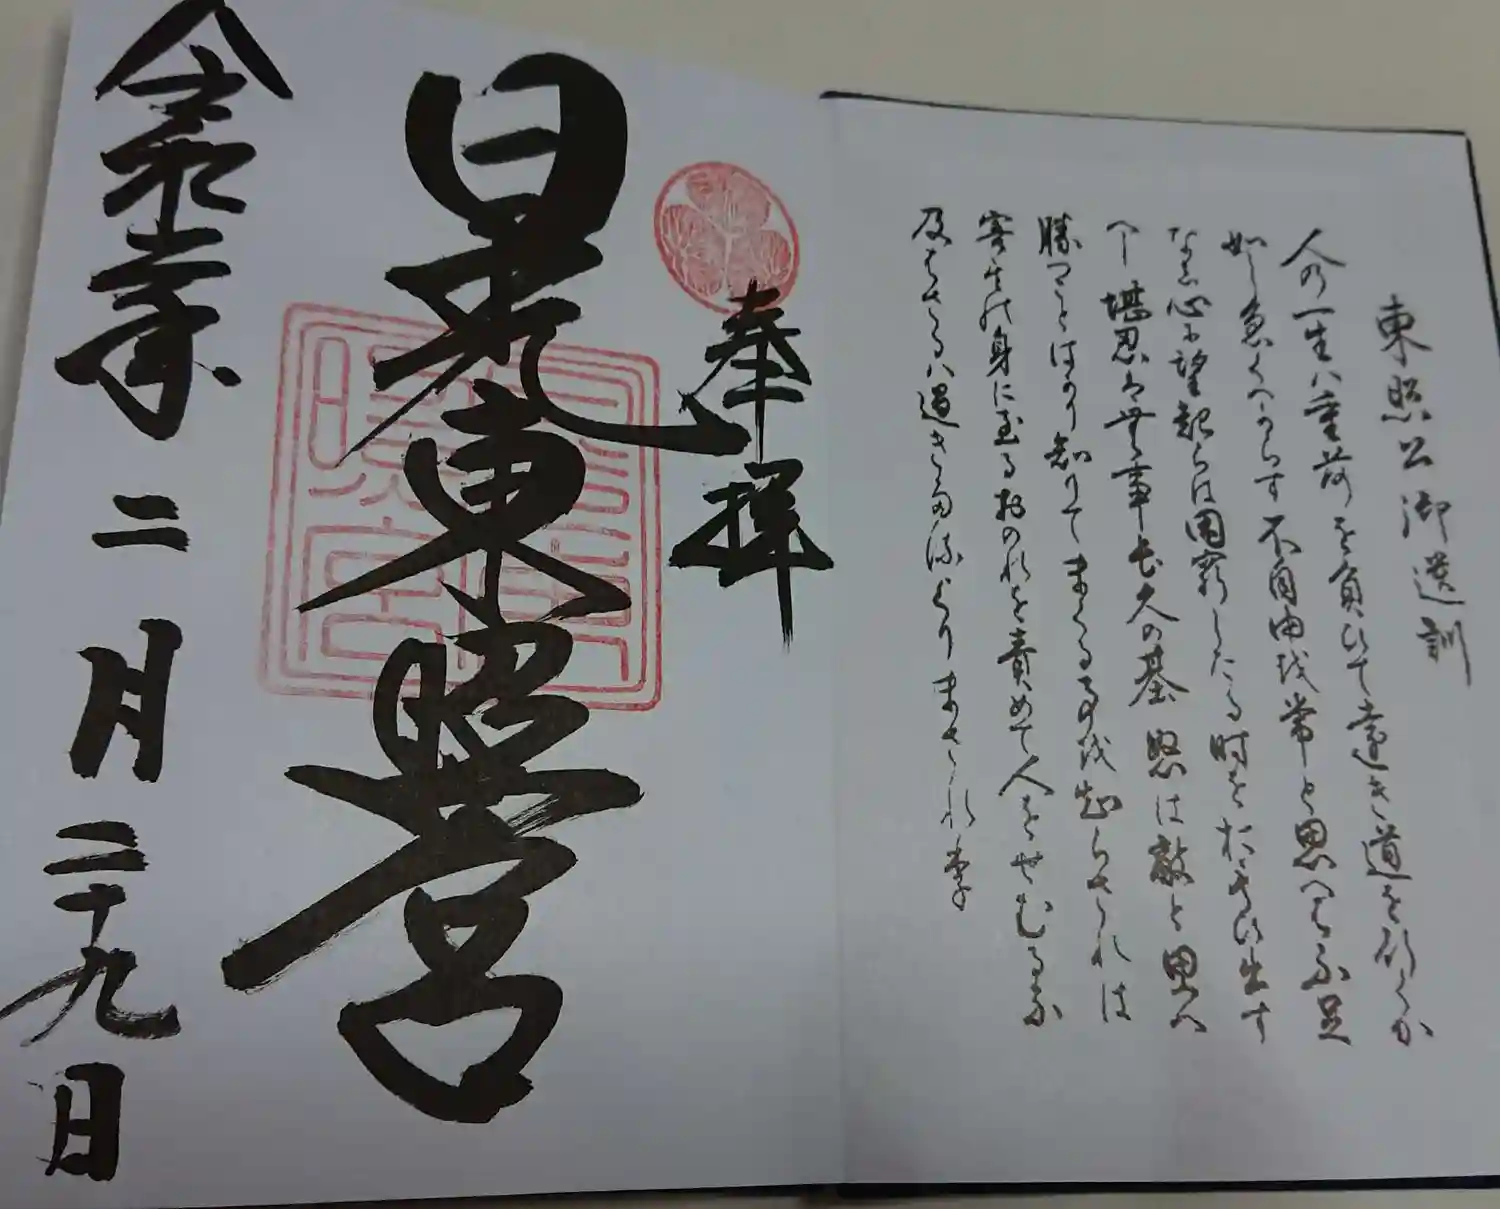 東照公御遺訓
人の一生ハ重荷を負ひて遠き道を行くか
如し急くへからす不自由を常と思へハ不足
なし心に望起らは困窮したる時をおもひ出す
へし堪忍は無事長久の基怒は敵と思へ
勝つことはかり知りてまくる事を知らされは
害其の身に至るおのれを責めて人をせむるな
及はさるハ過きたるよりまされり
奉拝
日光東照宮
令和二年二月二十九日